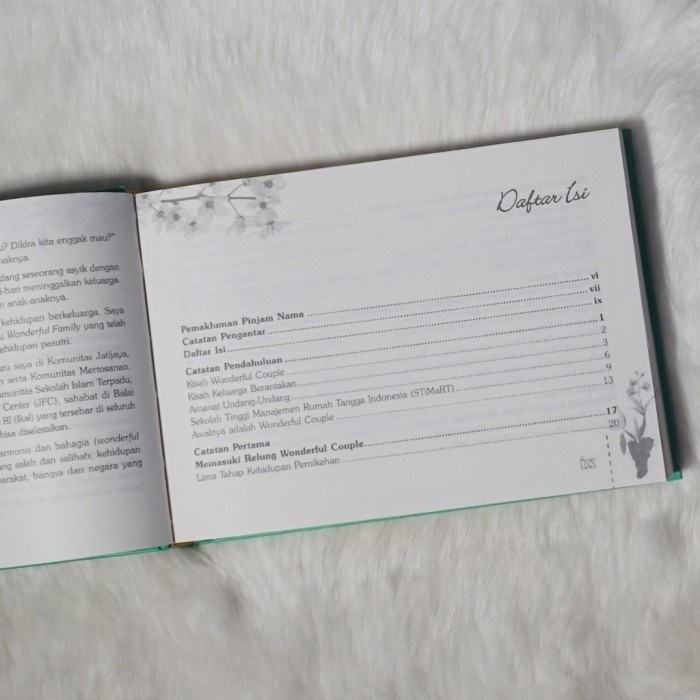 u? Dikira kita enggak mau?"
naknya.
dang seseorang asyik dengan
i-hari meninggalkan keluarga.
n anak-anaknya.
kehidupan berkeluarga. Saya
u Wonderful Family yang telah
ehidupan pasutri.
aru saya di Komunitas Jatijaya,
n serta Komunitas Mertosanan.
munitas Sekolah Islam Terpadu,
Center (JFC), sahabat di Balai
RI (Ikal) yang tersebar di seluruh
bisa diselesaikan.
armonis dan bahagia (wonderful
ng saleh dan salihah; kehidupan
arakat, bangsa dan negara yang
Daftar Isi
Pemakluman Pinjam Nama ........ vi
Catatan Pengantar ........ vii
Daftar Isi ........ ix
Catatan Pendahuluan ........ 1
Kisah Wonderful Couple ........ 2
Kisah Keluarga Berantakan ........ 3
Amanat Undang-Undang ........ 6
Sekolah Tinggi Manajemen Rumah Tangga Indonesia (STiMaRT) ........ 9
Awalnya adalah Wonderful Couple ........ 13
Catatan Pertama
Memasuki Relung Wonderful Couple ........ 17
Lima Tahap Kehidupan Pernikahan ........ 20
ix